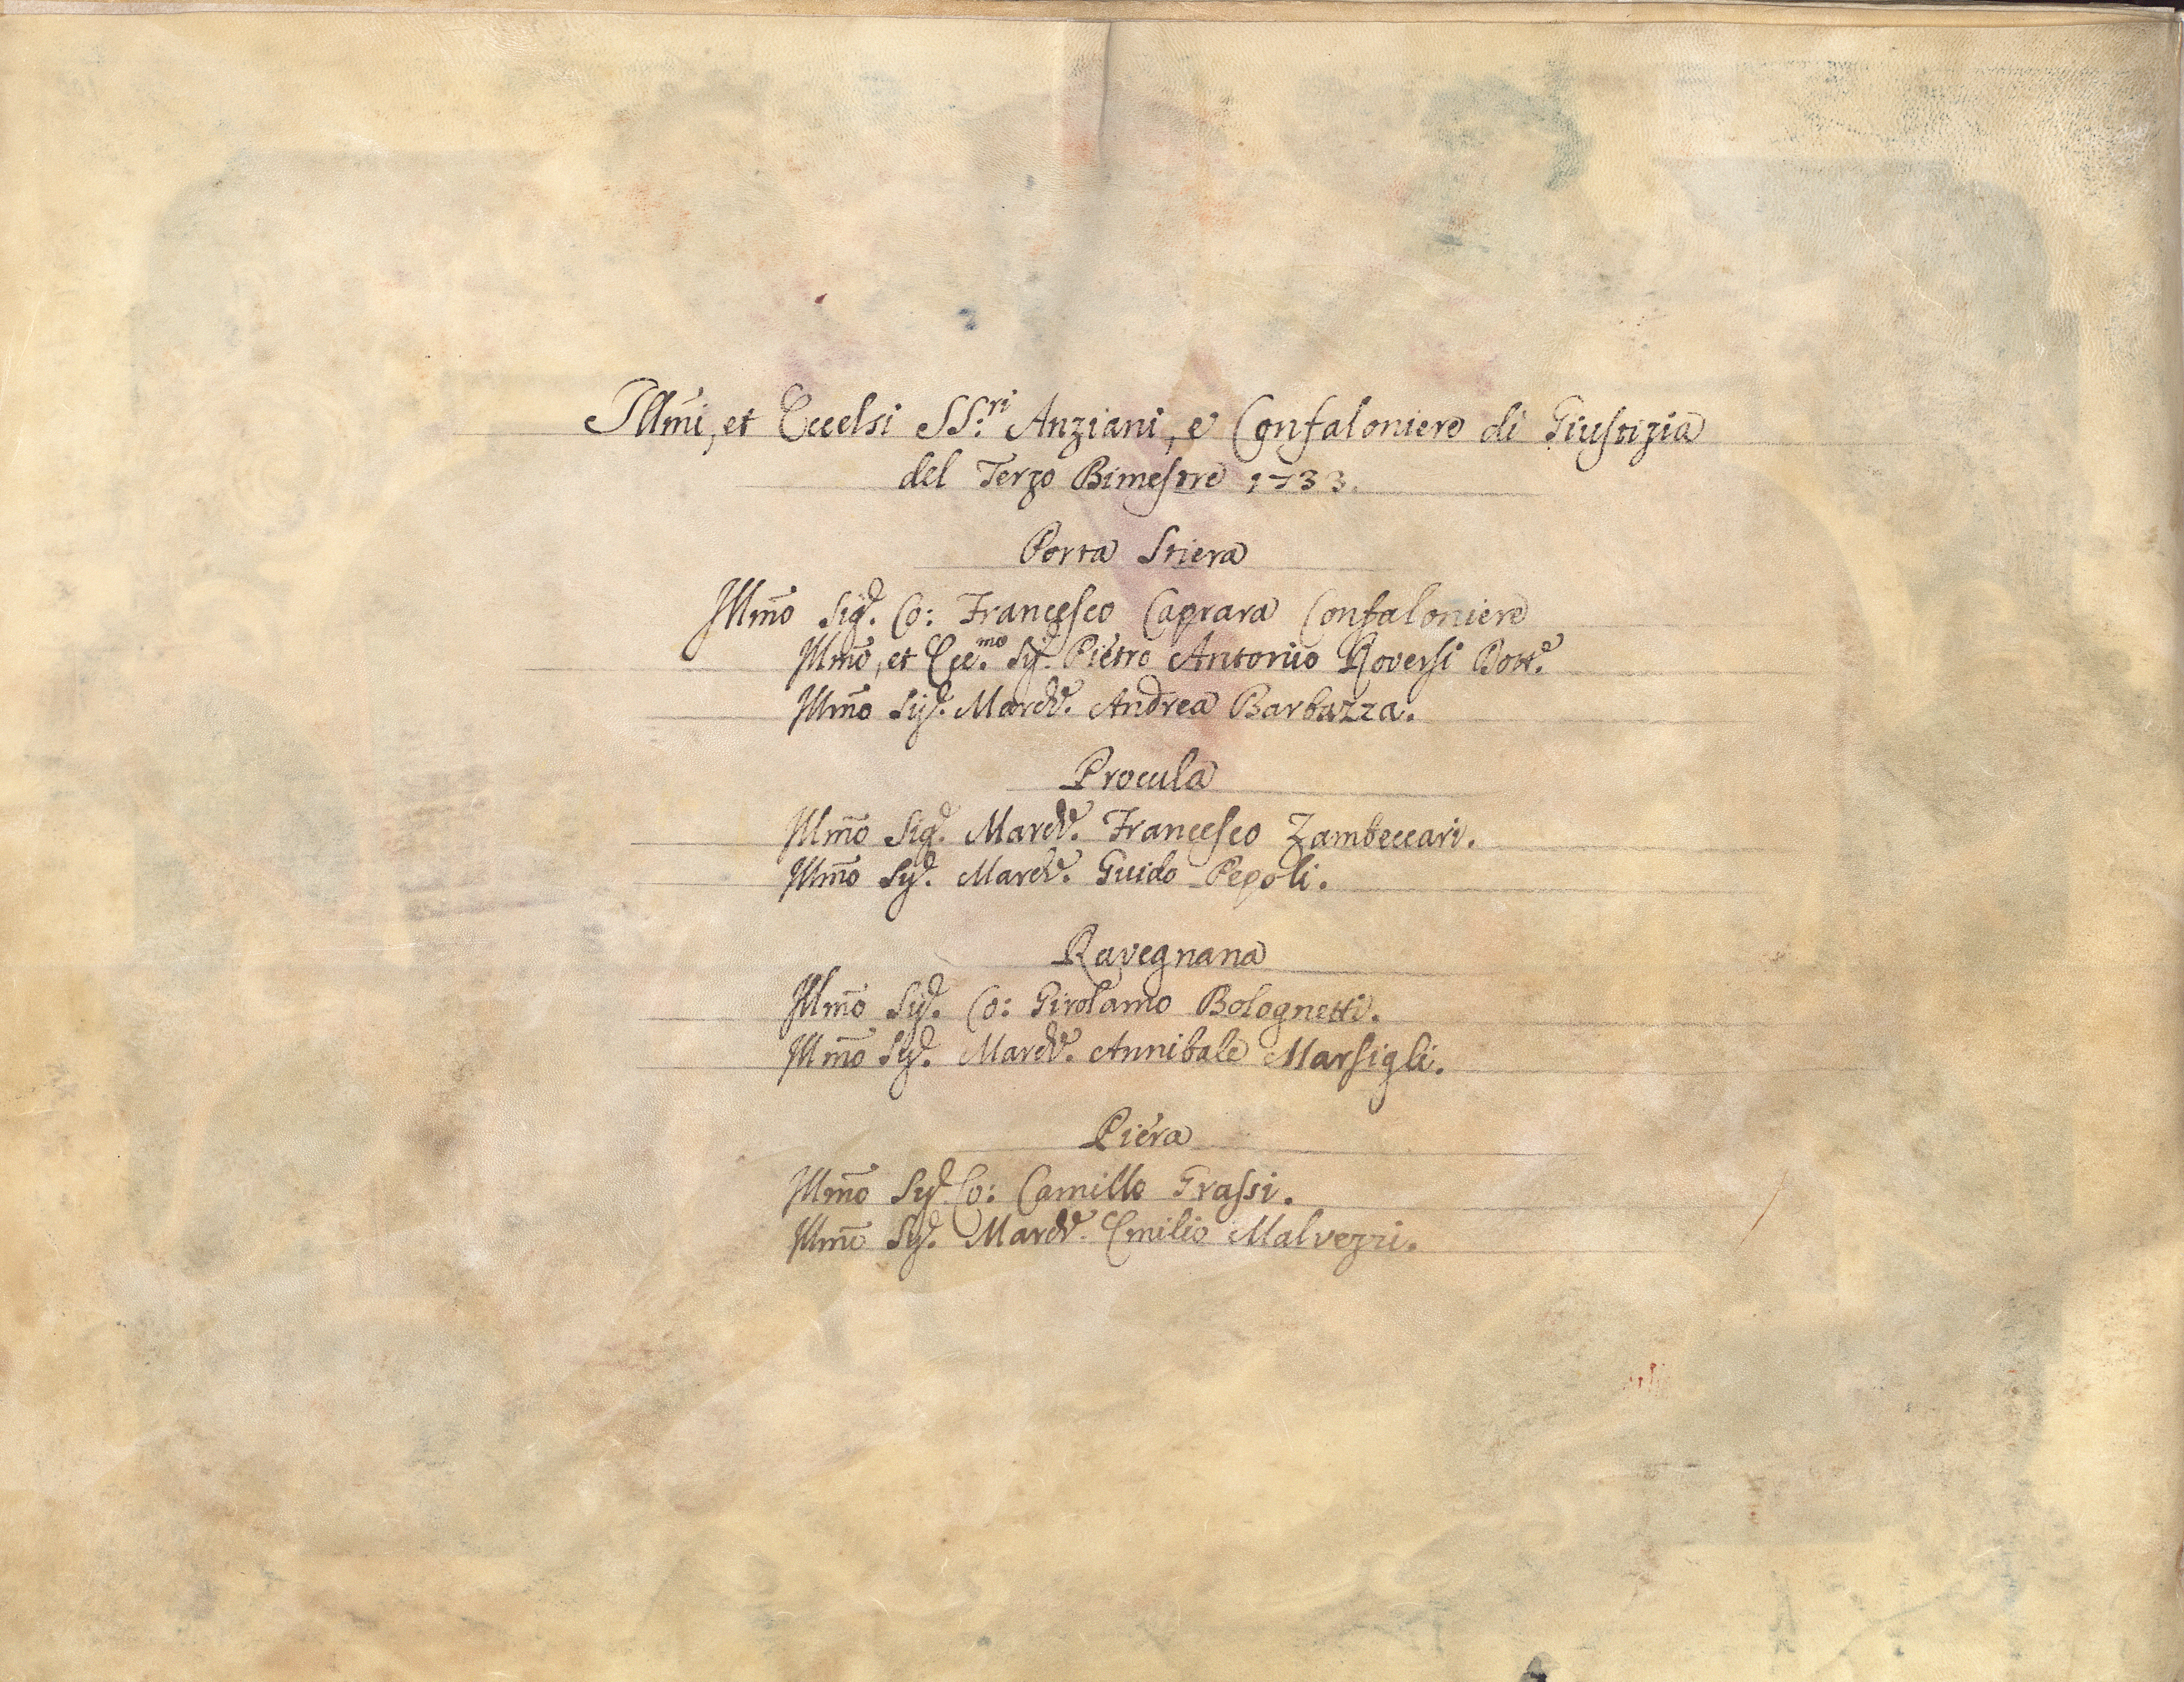 Illm̃i, et Eccelsi SS.ri Anziani, e Confaloniere di Giustizia
del Terzo Bimestre 1733.
Porta Stiera
Illm̃o Sig.e Co: Francesco Caprara Confaloniere
Illm̃o, et Ecc.mo Sig.e Pietro Antonio Roversi Dott.e
Illm̃o Sig.e March.e Andrea Barbazza.
Procula
Illm̃o Sig.e March.e Francesco Zambeccari.
Illm̃o Sig.e March.e Guido Pepoli.
Ravegnana
Illm̃o Sig.e Co: Girolamo Bolognetti.
Illm̃o Sig.e March.e Annibale Marsigli.
Piera
Illm̃o Sig.e Co: Camillo Grassi.
Illm̃o Sig.e March.e Emilio Malvezzi.